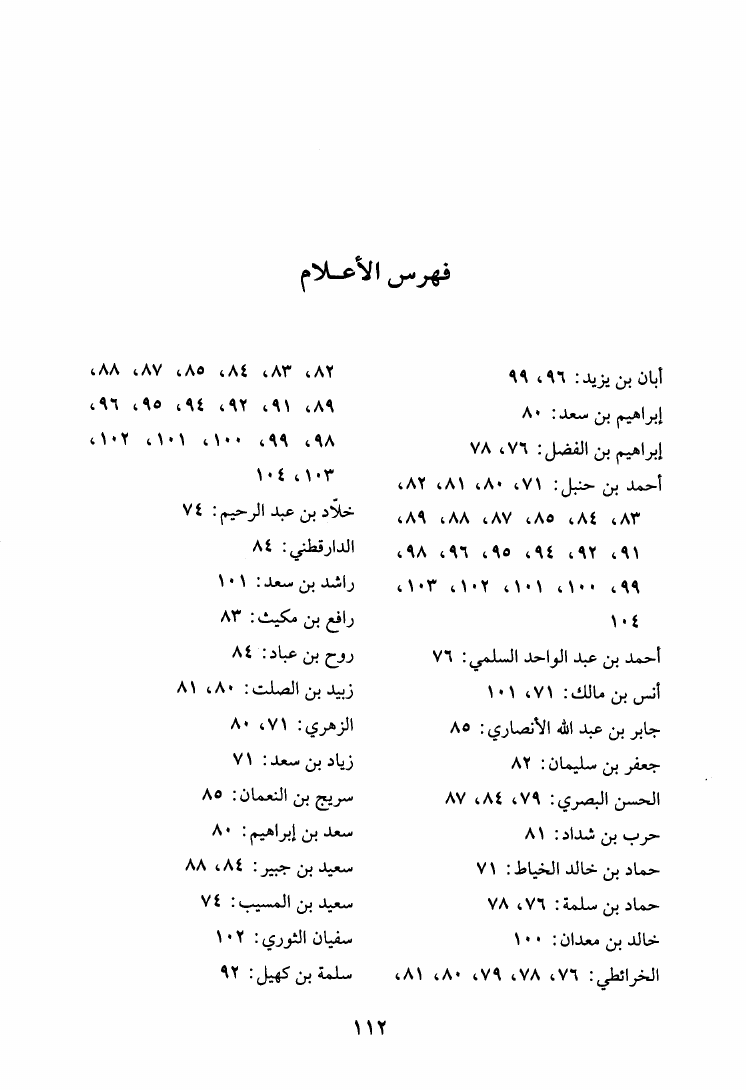 فهرس الأعـلام
أبان بن يزيد: ٩٦، ٩٩
إبراهيم بن سعد: ٨٠
إبراهيم بن الفضل: ٧٦، ٧٨
أحمد بن حنبل: ٧١، ٨٠، ٨١، ٨٢،
٨٣، ٨٤، ٨٥، ٨٧، ٨٨، ٨٩،
٩١، ٩٢، ٩٤، ٩٥، ٩٦، ٩٨،
٩٩، ١٠٠، ١٠١، ١٠٢، ١٠٣،
١٠٤
أحمد بن عبد الواحد السلمي: ٧٦
أنس بن مالك: ٧١، ١٠١
جابر بن عبد الله الأنصاري: ٨٥
جعفر بن سليمان: ٨٢
الحسن البصري: ٧٩، ٨٤، ٨٧
حرب بن شداد: ٨١
حماد بن خالد الخياط: ٧١
حماد بن سلمة: ٧٦، ٧٨
خالد بن معدان: ١٠٠
الخرائطي: ٧٦، ٧٨، ٧٩، ٨٠، ٨١،
٨٢، ٨٣، ٨٤، ٨٥، ٨٧، ٨٨،
٨٩، ٩١، ٩٢، ٩٤، ٩٥، ٩٦،
٩٨، ٩٩، ١٠٠، ١٠١، ١٠٢،
١٠٣، ١٠٤
خلاّد بن عبد الرحيم: ٧٤
الدارقطني: ٨٤
راشد بن سعد: ١٠١
رافع بن مكيث: ٨٣
روح بن عباد: ٨٤
زبيد بن الصلت: ٨٠، ٨١
الزهري: ٧١، ٨٠
زياد بن سعد: ٧١
سريج بن النعمان: ٨٥
سعد بن إبراهيم: ٨٠
سعيد بن جبير: ٨٤، ٨٨
سعيد بن المسيب: ٧٤
سفيان الثوري: ١٠٢
سلمة بن كهيل: ٩٢
١١٢